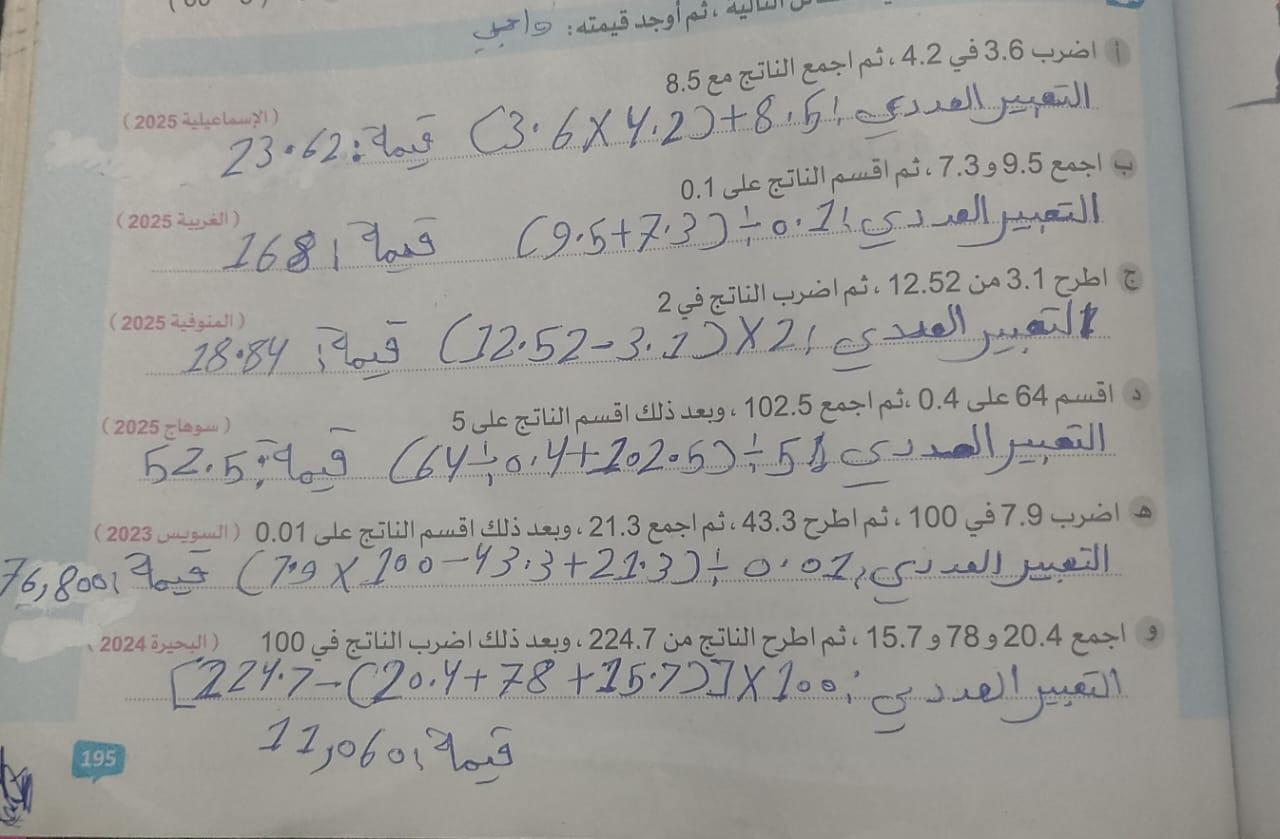 التالية ، ثم أوجد قيمته: واجبي
أ اضرب 3.6 في 4.2 ، ثم اجمع الناتج مع 8.5
(الإسماعيلية 2025)
التعبير العددي: (3.6 × 4.2) + 8.5 قيمة: 23.62
ب اجمع 9.5 و 7.3 ، ثم اقسم الناتج على 0.1
(الغربية 2025)
التعبير العددي: (9.5 + 7.3) ÷ 0.1 قيمة: 168
ج اطرح 3.1 من 12.52 ، ثم اضرب الناتج في 2
(المنوفية 2025)
التعبير العددي: (12.52 − 3.1) × 2 قيمة: 18.84
د اقسم 64 على 0.4 ،ثم اجمع 102.5 ، وبعد ذلك اقسم الناتج على 5
(سوهاج 2025)
التعبير العددي: (64 ÷ 0.4 + 102.5) ÷ 5 قيمة: 52.5
هـ اضرب 7.9 في 100 ، ثم اطرح 43.3 ، ثم اجمع 21.3 ، وبعد ذلك اقسم الناتج على 0.01 (السويس 2023)
التعبير العددي: (7.9 × 100 − 43.3 + 21.3) ÷ 0.01 قيمة: 76,800
و اجمع 20.4 و 78 و 15.7 ، ثم اطرح الناتج من 224.7 ، وبعد ذلك اضرب الناتج في 100 (البحيرة 2024
التعبير العددي: [224.7 − (20.4 + 78 + 15.7)] × 100
قيمة: 11,060
195